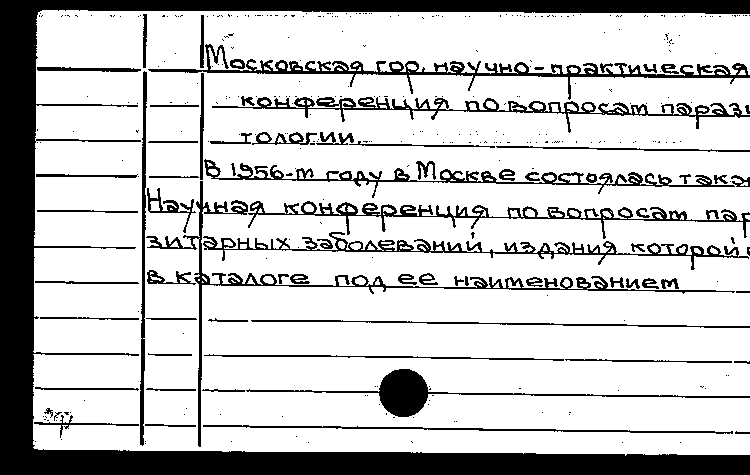 Московская гор. научно-практическая
конференция по вопросам парази
тологии.
В 1956-м году в Москве состоялась также
Научная конференция по вопросам пара
зитарных заболеваний, издания которой
в каталоге под ее наименованием